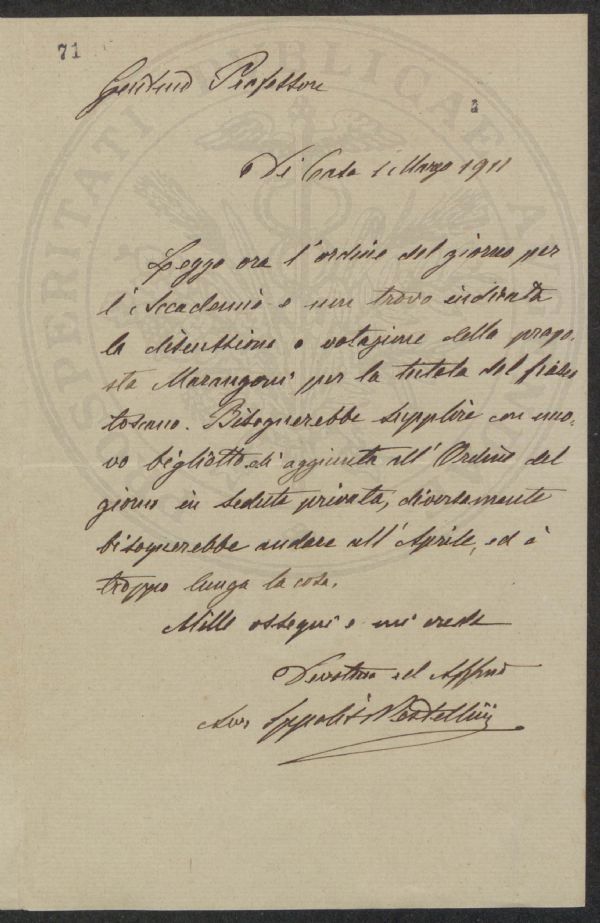 71
Gentmo Professore
2
Di Casa 1 Marzo 1911
Leggo ora l'ordine del giorno per
l'Accademia e non trovo indicata
la discussione e votazione della propo-
sta Marangoni per la tutela del fiasco
toscano. Bisognerebbe supplire con nuo-
vo biglietto di aggiunta all'Ordine del
giorno in seduta privata, diversamente
bisognerebbe andare all'Aprile, ed è
troppo lunga la cosa.
Mille ossequi e mi creda
Devotmo ed Affmo
Avv Ippolito Pestellini